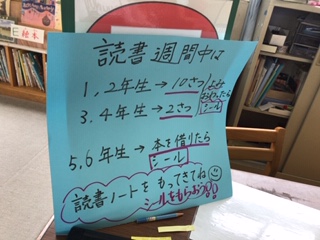 読書週間中は
1,2年生→10さつ
よみおわったら
3.4年生→2さつ シール
5,6年生→本を借りたら
シール
読書ノートをもってきてね
シールをもらおう
絵本